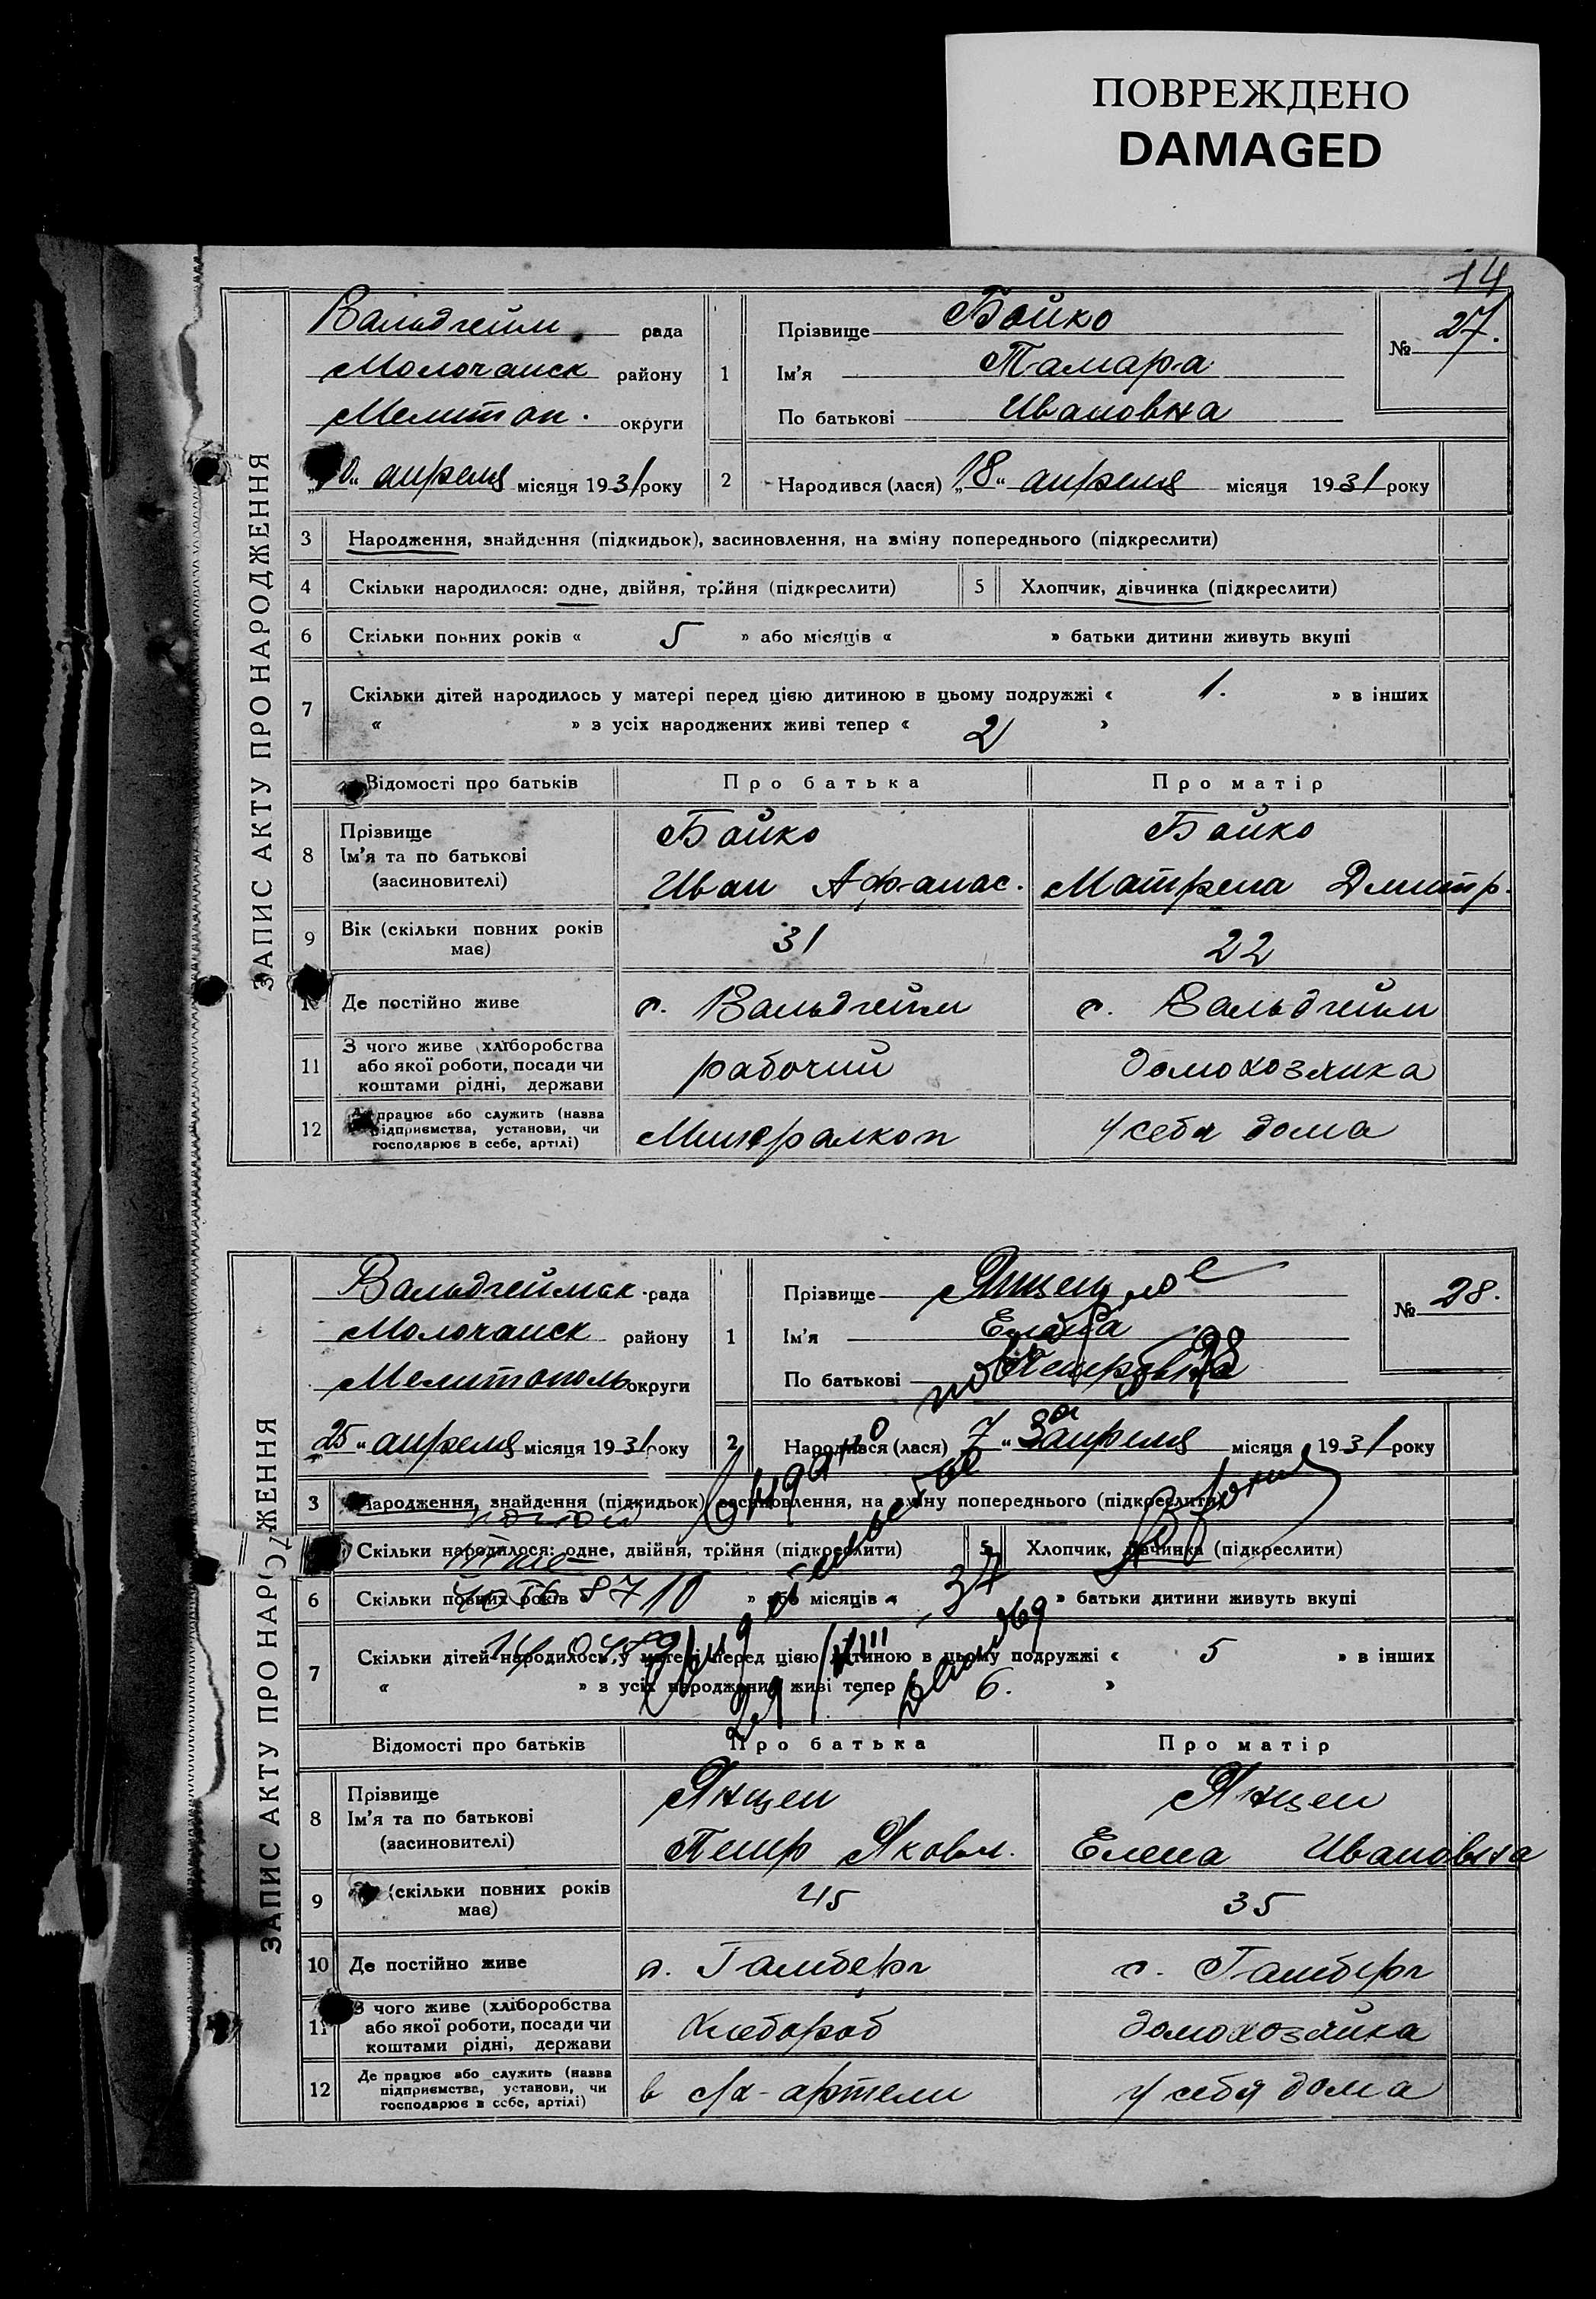 ПОВРЕЖДЕНО
DAMAGED
14
ЗАПИС АКТУ ПРО НАРОДЖЕННЯ
Вальдгейм рада
Молочанск району
Мелитоп. округи
апреля місяця 1931 року
1
Прізвище Бойко
Ім'я Тамара
По батькові Ивановна
№ 27.
2 Народився (лася) „18" апреля місяця 1931 року
3 Народження, знайдення (підкидьок), засиновлення, на зміну попереднього (підкреслити)
4 Скільки народилося: одне, двійня, трійня (підкреслити) 5 Хлопчик, дівчинка (підкреслити)
6 Скільки повних років « 5 » або місяців « » батьки дитини живуть вкупі
7 Скільки дітей народилось у матері перед цією дитиною в цьому подружжі « 1. » в інших
« » з усіх народжених живі тепер « 2 »
Відомості про батьків Про батька Про матір
8 Прізвище Бойко Бойко
Ім'я та по батькові
(засиновителі) Иван Афанас. Матрена Дмитр.
9 Вік (скільки повних років має) 31 22
Де постійно живе с. Вальдгейм с. Вальдгейм
11 З чого живе (хліборобства
або якої роботи, посади чи рабочий домохозяйка
коштами рідні, держави
12 працює або служить (назва
підприємства, установи, чи Минералкоп у себя дома
господарює в себе, артілі)
ЗАПИС АКТУ ПРО НАРОДЖЕННЯ
Вальдгеймск рада
Молочанск району
Мелитополь округи
„25" апреля місяця 1931 року
1
Прізвище Янцен
Ім'я Елена
По батькові Петровна
№ 28.
2 Народився (лася) 7" апреля місяця 1931 року
3 Народження, знайдення (підкидьок), засиновлення, на зміну попереднього (підкреслити)
Скільки народилося: одне, двійня, трійня (підкреслити) 5 Хлопчик, дівчинка (підкреслити)
6 Скільки повних років » або місяців « » батьки дитини живуть вкупі
7 Скільки дітей народилось у матері перед цією дитиною в цьому подружжі « 5 » в інших
« » з усіх народжених живі тепер 6. »
Відомості про батьків Про батька Про матір
8 Прізвище Янцен Янцен
Ім'я та по батькові
(засиновителі) Петр Яковл. Елена Ивановна
9 (скільки повних років має) 45 35
10 Де постійно живе с. Гамберг с. Гамберг
11 З чого живе (хліборобства
або якої роботи, посади чи хлебороб домохозяйка
коштами рідні, держави
12 Де працює або служить (назва
підприємства, установи, чи в с/х-артели у себя дома
господарює в себе, артілі)